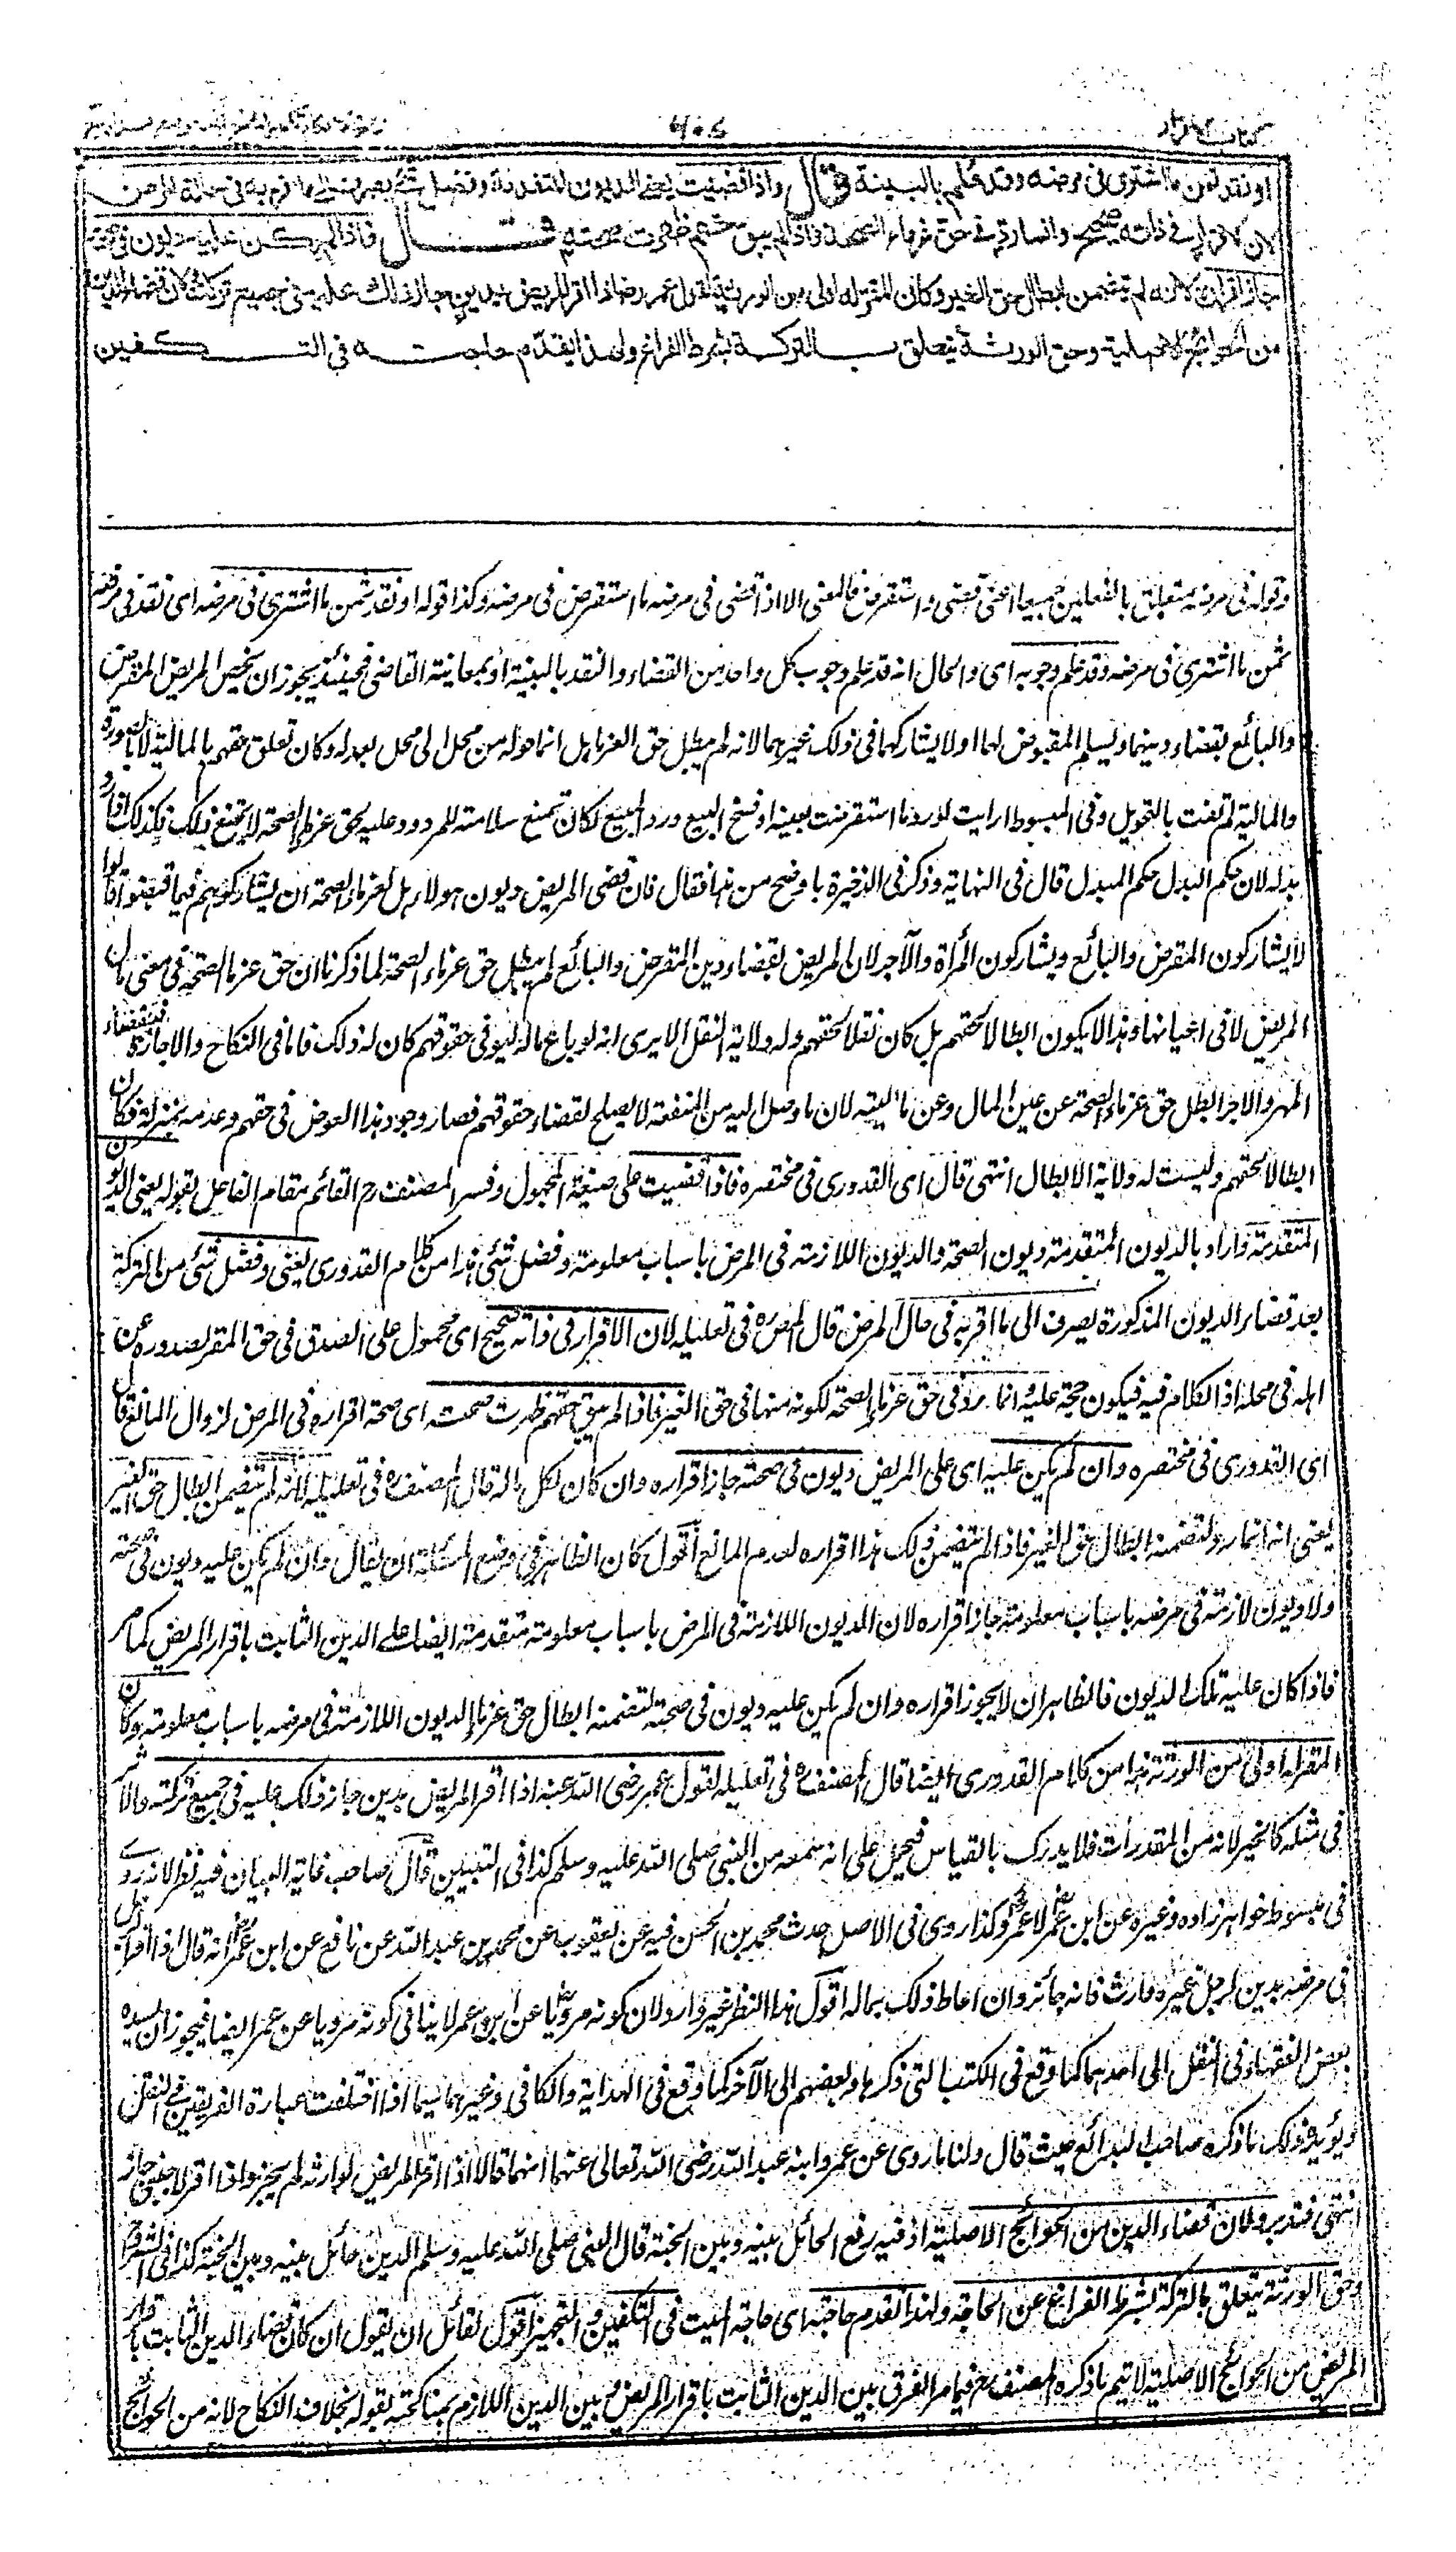 كتاب الاقرار
او نقد ثمن ما اشترى فى مرضه وقد علم بالبينة قال واذا قضيت يعنى الديون المتقدمة وفضل شئ يصرف الى ما اقر به فى حالة المرض
لان الاقرار فى ذاته صحيح وانما رد فى حق غرماء الصحة فاذا لم يبق حقهم ظهرت صحته قال فاذا لم يكن عليه ديون فى صحته
جاز اقراره لانه لم يتضمن ابطال حق الغير وكان المقر له اولى من الورثة لقول عمر رضـ اذا اقر المريض بدين جاز ذلك عليه فى جميع تركته ولان قضاء الدين
من الحوائج الاصلية وحق الورثة يتعلق بالتركة بشرط الفراغ ولهذا يقدم حاجته فى التكفين
وقوله فى مرضه متعلق بالفعلين جميعا اعنى قضى واستقرض فالمعنى الا اذا قضى فى مرضه ما استقرض فى مرضه وكذا قوله او نقد ثمن ما اشترى فى مرضه اى نقد فى مرضه
ثمن ما اشترى فى مرضه وقد علم وجوبه اى والحال انه قد علم وجوب كل واحد من القضاء والنقد بالبينة او بمعاينة القاضى فحينئذ يجوز ان يخص المريض المقرض
والبائع بقضاء دينهما ويسلم المقبوض لهما اولا يشاركهما فى ذلك غيرهما لانه لم يبطل حق الغرماء بل انما حوله من محل الى محل يعدله وكان تعلق حقهم بالمالية لا بالصورة
والمالية لم تفت بالتحويل وفى المبسوط ارايت لو رد ما استقرضت بعينه او فسخ البيع ورد المبيع لكان تمنع سلامته للمردود عليه بحق غرماء الصحة لا يمتنع ذلك فكذلك اذا رد
بدله لان حكم البدل حكم المبدل قال فى النهاية وذكر فى الذخيرة باوضح من هذا فقال فان قضى المريض ديون هولاء هل لغرماء الصحة ان يشاركوهم فيما قبضوا قالوا
لا يشاركون المقرض والبائع ويشاركون المرأة والآجر لان المريض بقضاء دين المقرض والبائع لم يبطل حق غرماء الصحة لما ذكرنا ان حق غرماء الصحة فى معنى مال
المريض لا فى اعيانها وهذا لا يكون ابطالا لحقهم بل كان نقلا لحقهم وله ولاية النقل الا يرى انه لو باع ماله ليوفى حقوقهم كان له ذلك فاما فى النكاح والاجارة فبقضاء
المهر والاجر ابطل حق غرماء الصحة عن عين المال وعن ماليته لان ما وصل اليه من المنفعة لا يصلح لقضاء حقوقهم فصار وجود هذا العوض فى حقهم وعدمه بمنزلة فكان
ابطالا لحقهم وليست له ولاية الابطال انتهى قال اى القدورى فى مختصره فاذا قضيت على صيغة المجهول وفسر المصنف رح القائم مقام الفاعل بقوله يعنى الديون
المتقدمة واراد بالديون المتقدمة ديون الصحة والديون اللازمة فى المرض باسباب معلومة وفضل شئ هذا من كلام القدورى يعنى وفضل شئ من التركة
بعد قضاء الديون المذكورة يصرف الى ما اقر به فى حال المرض قال المصرة فى تعليله لان الاقرار فى ذاته صحيح اى محمول على الصدق فى حق المقر لصدوره عن
اهله فى محله اذ الكلام فيه فيكون حجة عليه انما رد فى حق غرماء الصحة لكونه منهما فى حق الغير فاذا لم يبق حقهم ظهرت صحته اى صحة اقراره فى المرض لزوال المانع قال
اى القدورى فى مختصره وان لم يكن عليه اى على المريض ديون فى صحته جاز اقراره وان كان لكل ماله قال المصنف رہ فى تعليله لانه لم يتضمن ابطال حق الغير
يعنى انه انما رد لتضمنه ابطال حق الغير فاذا لم يتضمن ذلك هذا اقراره لعدم المانع اقول كان الظاهر فى وضع المسئلة ان يقال وان لم يكن عليه ديون فى صحته
ولا ديون لازمة فى مرضه باسباب معلومة جاز اقراره لان الديون اللازمة فى المرض باسباب معلومة متقدمة ايضا على الدين الثابت باقرار المريض كما مر
فاذا كان عليه تلك الديون فالظاهر ان لا يجوز اقراره وان لم يكن عليه ديون فى صحته لتضمنه ابطال حق غرماء الديون اللازمة فى مرضه باسباب معلومة وكان
المقر له اولى من الورثة هذا من كلام القدورى ايضا قال المصنف رہ فى تعليله لقول عمر رضى الله عنه اذا اقر المريض بدين جاز ذلك عليه فى جميع تركته والاثر
فى مثله كالخبر لانه من المقدرات فلا يدرك بالقياس فيحمل على انه سمعه من النبى صلى الله عليه وسلم كذا فى التبيين قال صاحب غاية البيان فيه نظر لانه روى
فى مبسوط خواهر زاده وغيره عن ابن عمر لا عمر وكذا روى فى الاصل حدث محمد بن الحسن فيه عن يعقوب عن محمد بن عبد الله عن نافع عن ابن عمر انه قال اذا اقر الرجل
فى مرضه بدين لرجل غير وارث فانه جائز وان احاط ذلك بماله اقول هذا النظر غير وارد لان كونه مرويا عن ابن عمر لا ينافى كونه مرويا عن عمر ايضا فيجوز ان يسنده
بعض الفقهاء فى النقل الى احدهما كما وقع فى الكتب التى ذكرها وبعضهم الى الآخر كما وقع فى الهداية والكافى وغيرهما سيما اذا اختلفت عبارة الفريقين فى النقل
ويؤيد ذلك ما ذكره صاحب البدائع حيث قال ولنا ما روى عن عمر وابنه عبد الله رضى الله تعالى عنهما انهما قالا اذا اقر المريض لوارثه لم يجز واذا اقر لاجنبى جاز
انتهى فتدبر ولان قضاء الدين من الحوائج الاصلية اذ فيه رفع الحائل بينه وبين الجنة قال النبى صلى الله عليه وسلم الدين حائل بينه وبين الجنة كذا فى الشروح
وحق الورثة يتعلق بالتركة بشرط الفراغ عن الحاجة ولهذا تقدم حاجته اى حاجة الميت فى التكفين والتجهيز اقول لقائل ان يقول ان كان قضاء الدين الثابت باقرار
المريض من الحوائج الاصلية لا يتم ما ذكره المصنف رح فيما مر الفرق بين الدين الثابت باقرار المريض وبين الدين اللازم بمناكحته بقوله بخلاف النكاح لانه من الحوائج